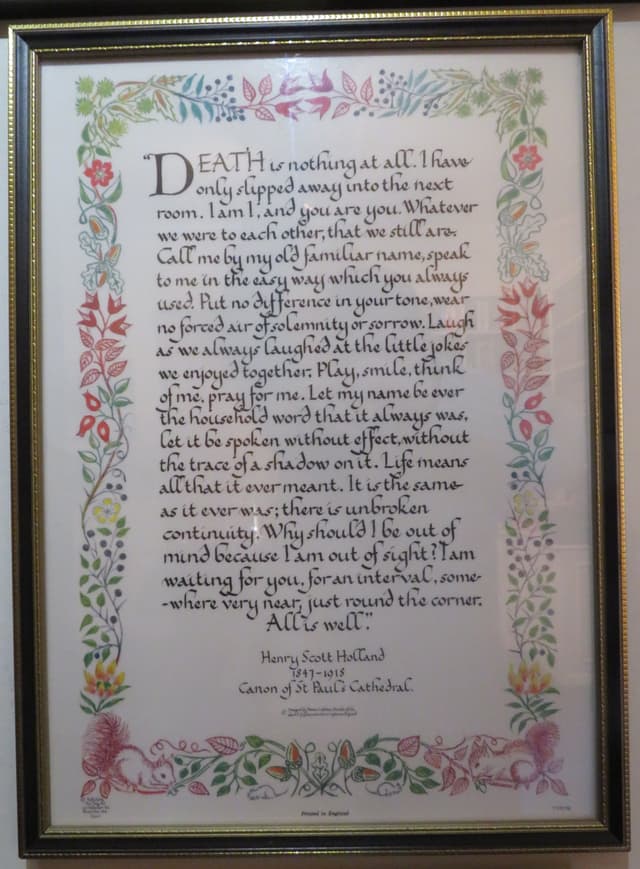 “DEATH is nothing at all. I have
only slipped away into the next
room. I am I, and you are you. Whatever
we were to each other, that we still are.
Call me by my old familiar name, speak
to me in the easy way which you always
used. Put no difference in your tone, wear
no forced air of solemnity or sorrow. Laugh
as we always laughed at the little jokes
we enjoyed together. Play, smile, think
of me, pray for me. Let my name be ever
the household word that it always was,
let it be spoken without effect, without
the trace of a shadow on it. Life means
all that it ever meant. It is the same
as it ever was; there is unbroken
continuity. Why should I be out of
mind because I am out of sight? I am
waiting for you, for an interval, some-
-where very near, just round the corner.
All is well.”
Henry Scott Holland
1847-1918
Canon of St Paul's Cathedral.
Printed in England